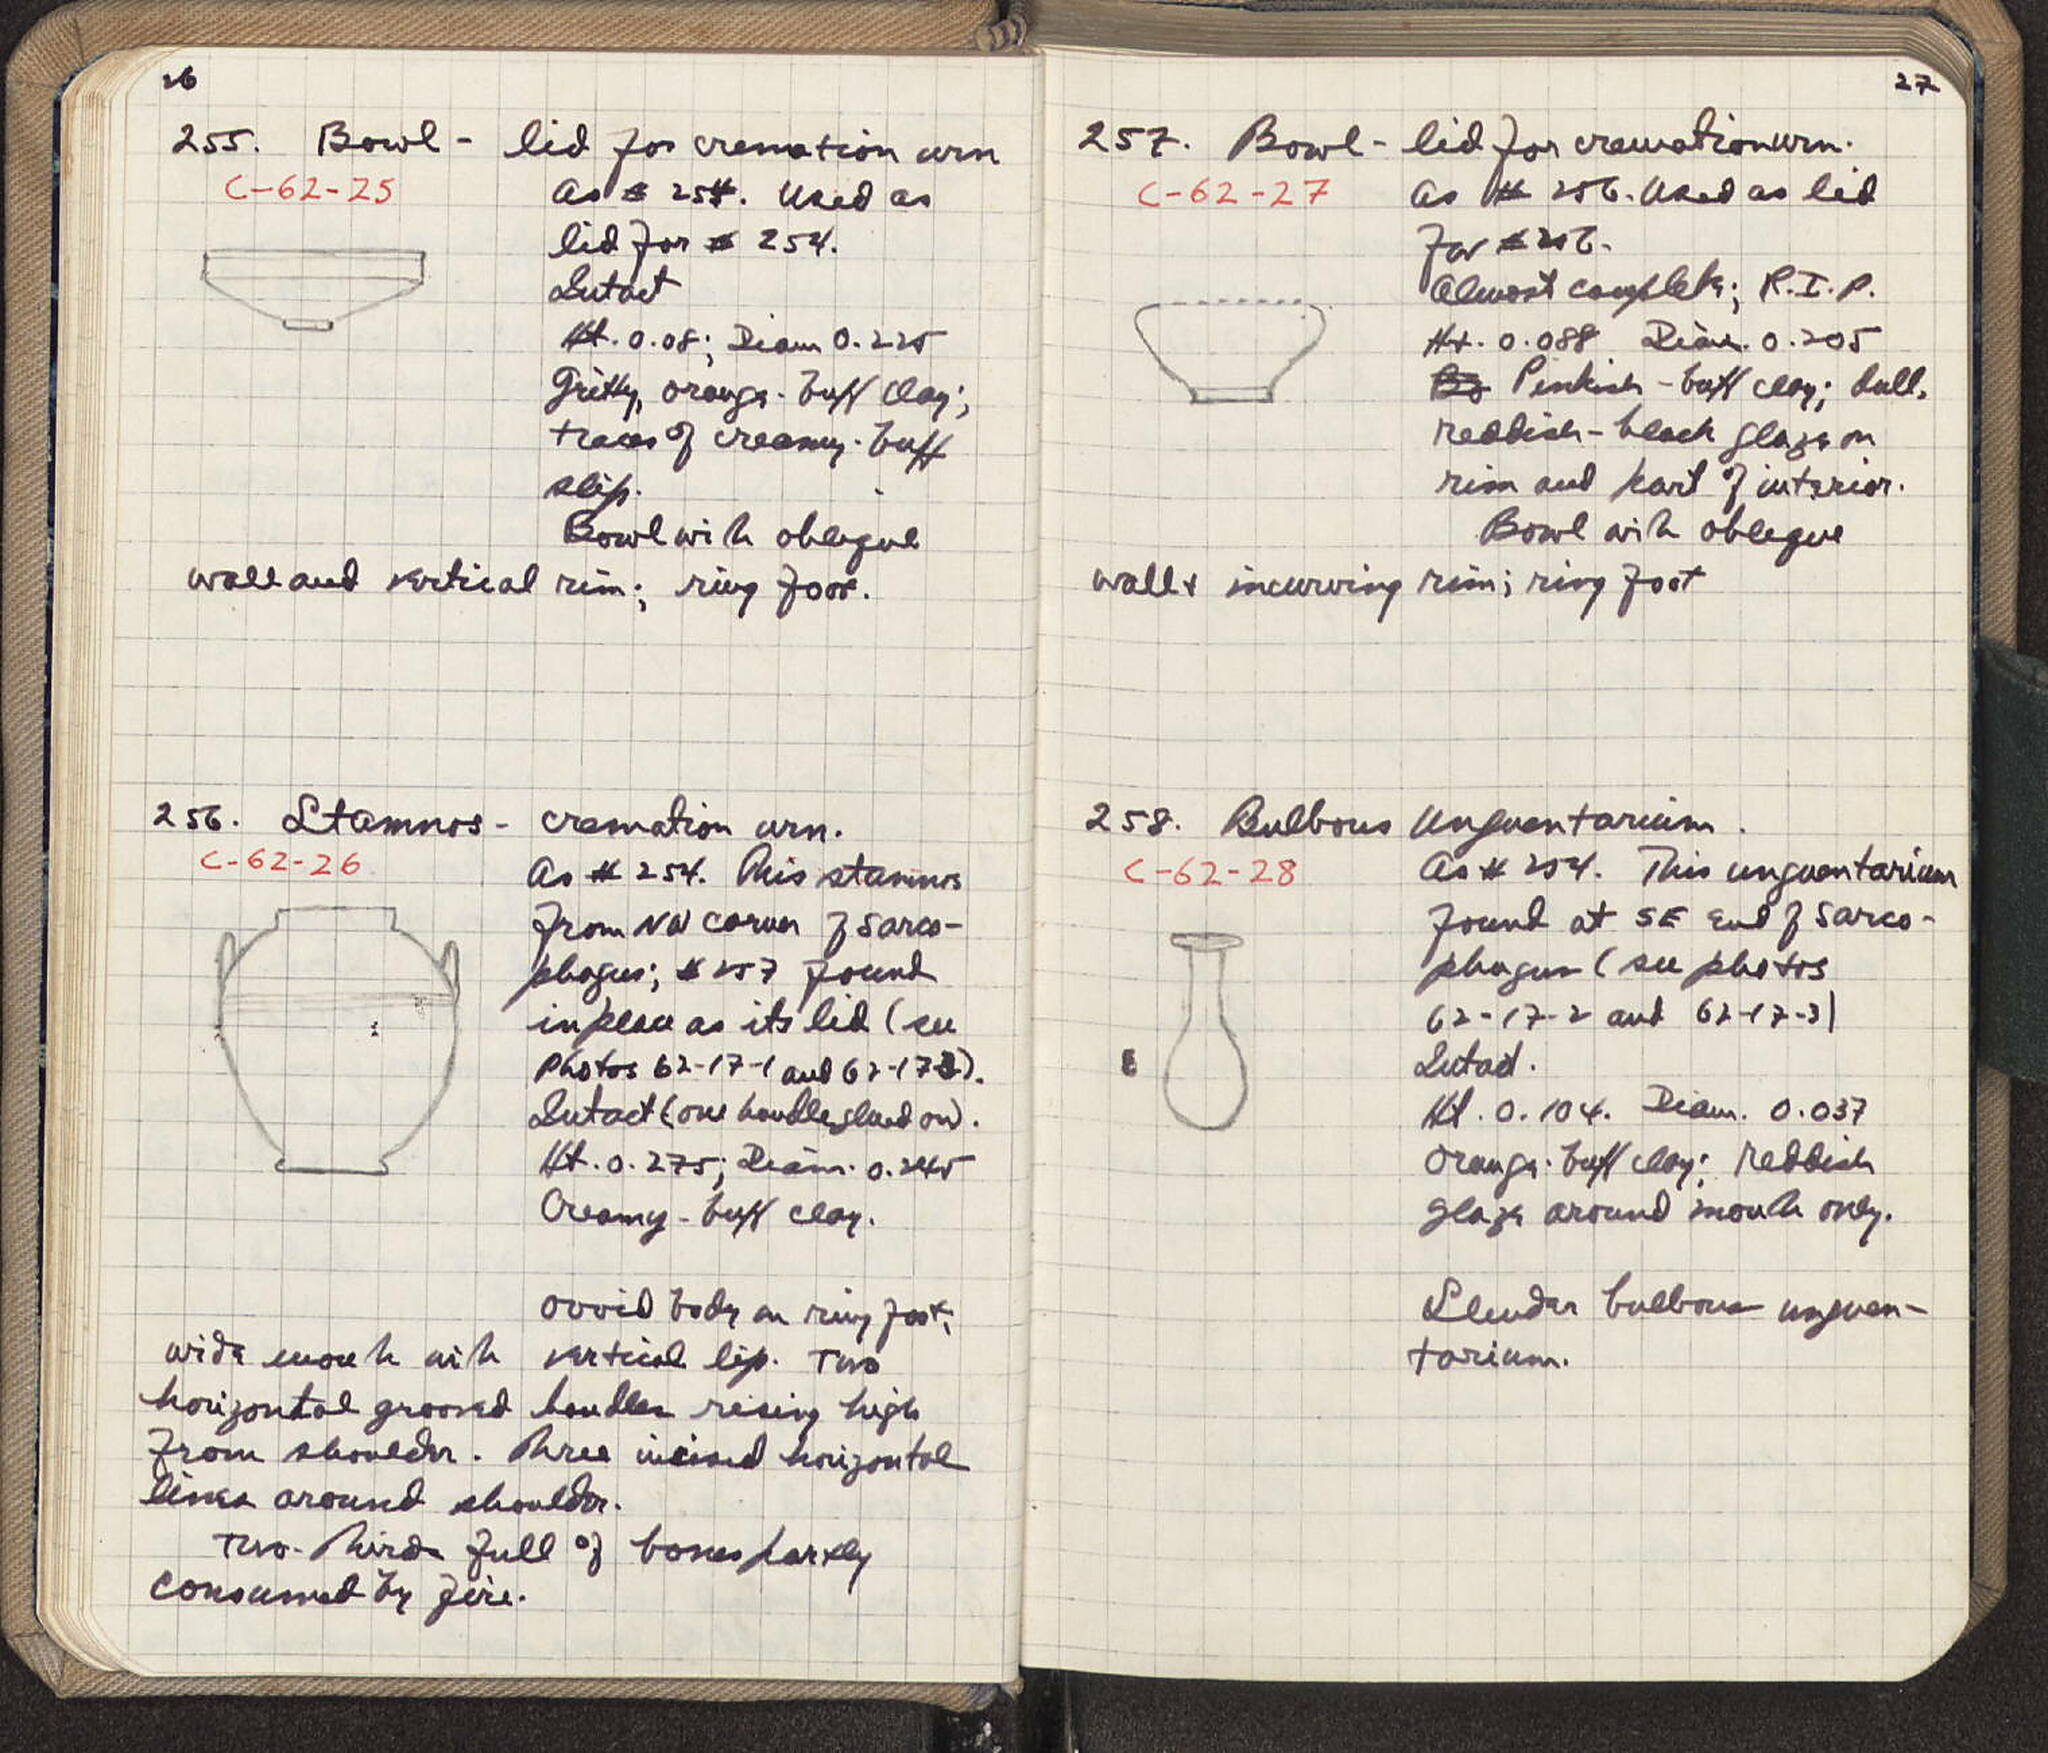 26
255. Bowl - lid for cremation urn
C-62-25
As # 254. Used as
lid for # 254.
Intact
Ht. 0.08; Diam 0.225
Gritty, orange-buff clay;
traces of creamy-buff
slip.
Bowl with oblique
wall and vertical rim; ring foot.
256. Stamnos - cremation urn.
C-62-26
As # 254. This stamnos
from NW corner of sarco-
phagus; # 257 found
in place as its lid (see
Photos 62-17-1 and 62-17-2).
Intact (one handle glued on).
Ht. 0.275; Diam. 0.245
Creamy-buff clay.
Ovoid body on ring foot;
wide mouth with vertical lip. Two
horizontal grooved handles rising high
from shoulder. Three incised horizontal
lines around shoulder.
Two-thirds full of bones partly
consumed by fire.
27
257. Bowl - lid for cremation urn.
C-62-27
As # 256. Used as lid
for # 256.
Almost complete; R.I.P.
Ht. 0.088 Diam. 0.205
Pinkish-buff clay; dull,
reddish-black glaze on
rim and part of interior.
Bowl with oblique
wall + incurving rim; ring foot
258. Bulbous Unguentarium.
C-62-28
As # 254. This unguentarium
found at SE end of sarco-
phagus (see photos
62-17-2 and 62-17-3)
Intact.
Ht. 0.104. Diam. 0.037
Orange-buff clay; reddish
glaze around mouth only.
Slender bulbous unguen-
tarium.